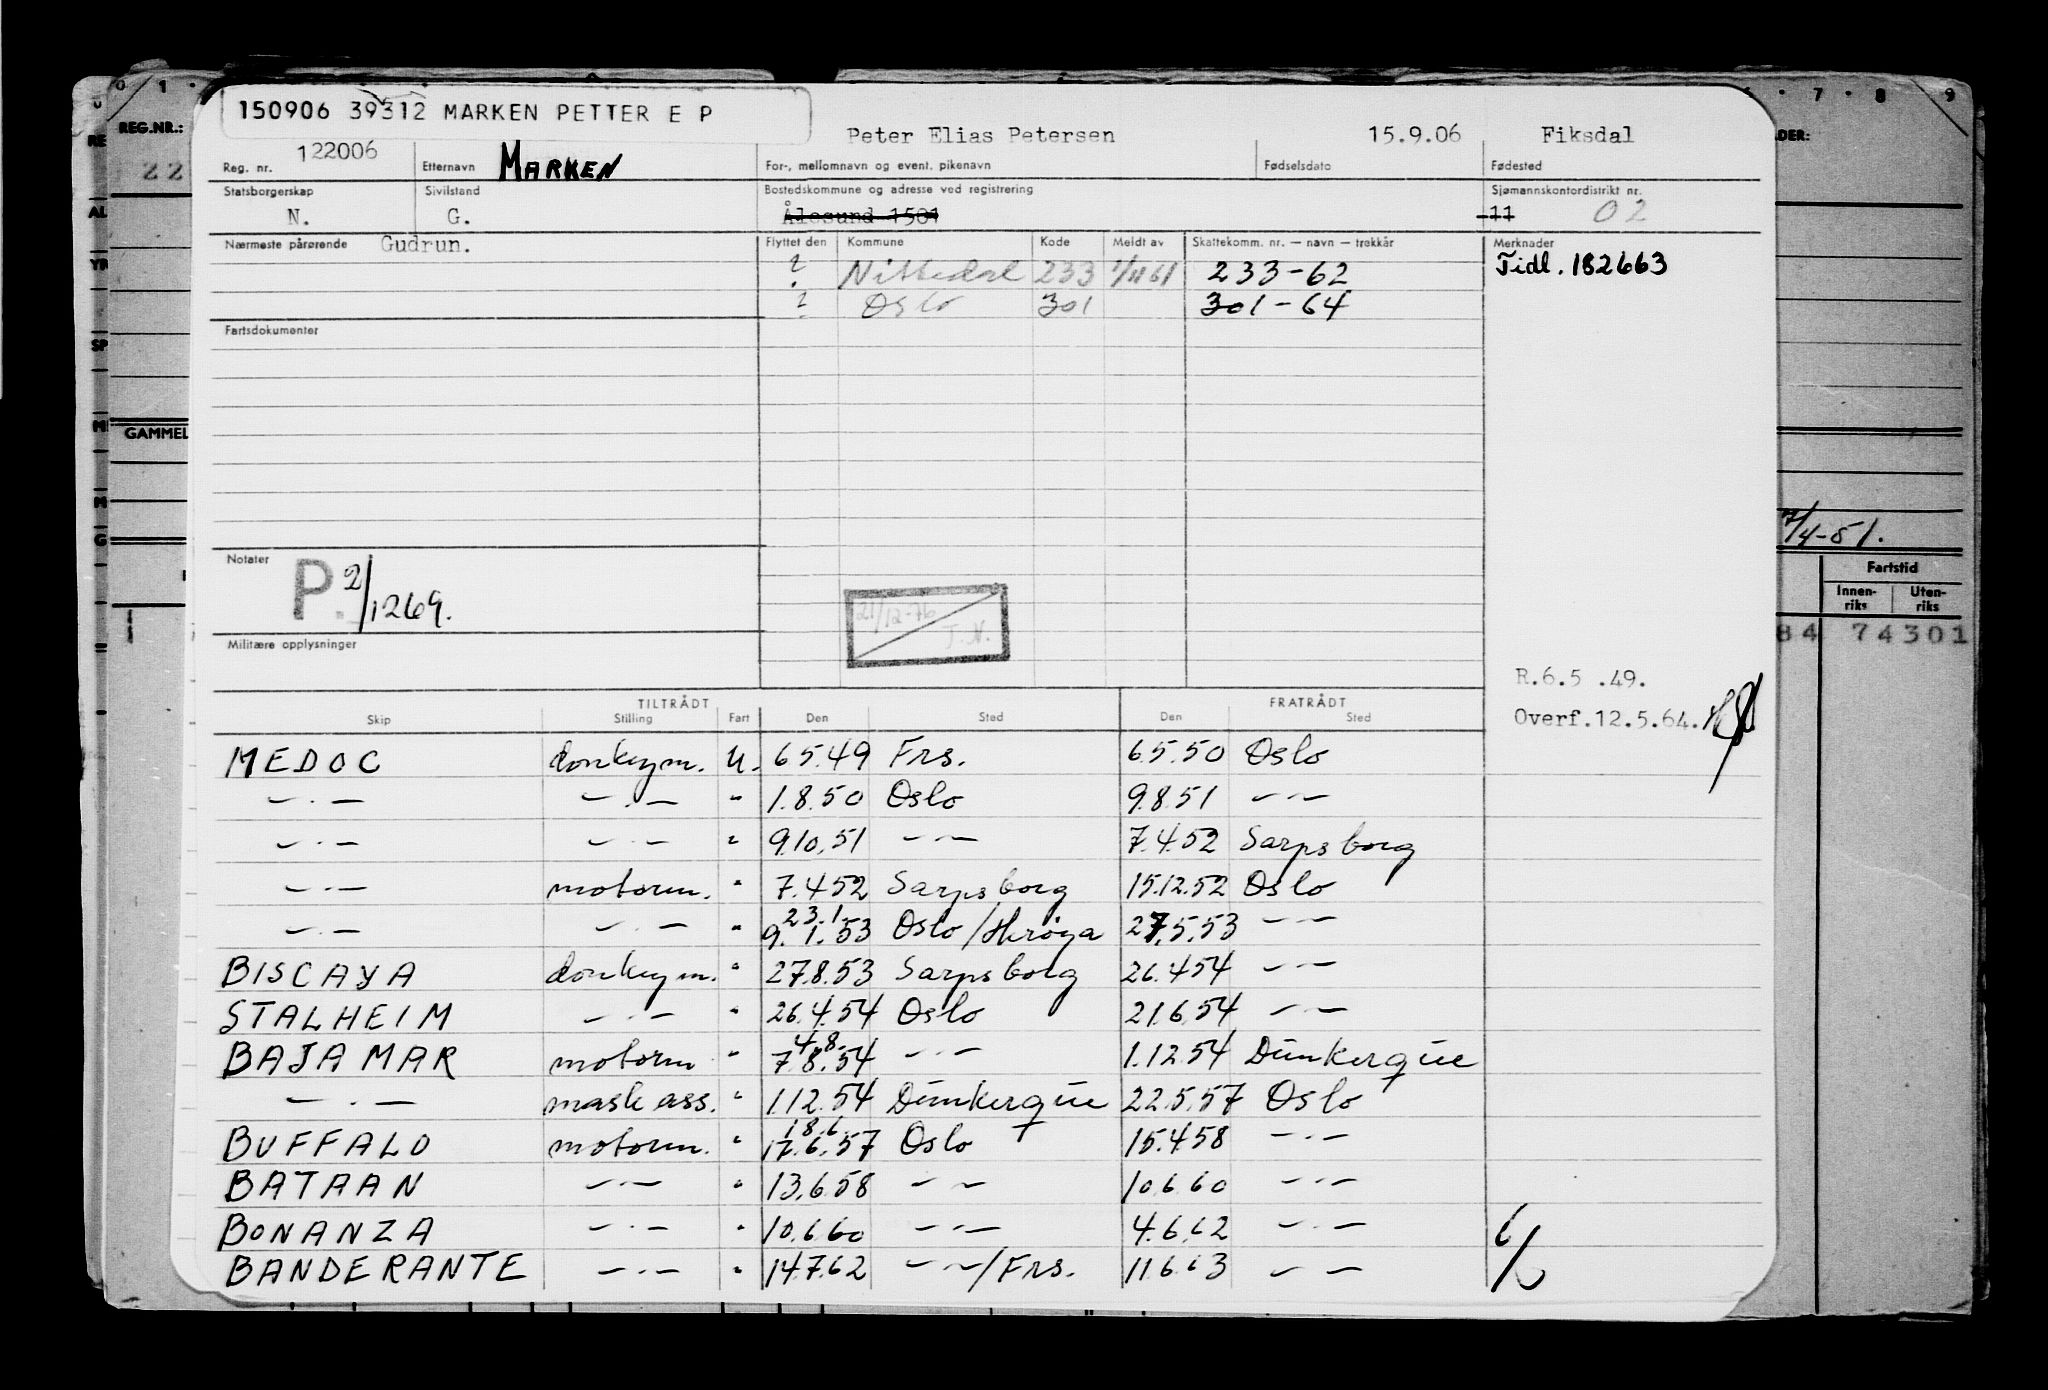 0 1 · 7 · 8 9
REG.NR.: DER:
22
150906 39312 MARKEN PETTER E P
Peter Elias Petersen 15.9.06 Fiksdal
122006 MARKEN
Reg. nr. Etternavn For-, mellomnavn og event. pikenavn Fødselsdato Fødested
Statsborgerskap Sivilstand Bostedskommune og adresse ved registrering Sjømannskontordistrikt nr.
N. G. Ålesund 1501 11 02
Nærmeste pårørende Gudrun. Flyttet den Kommune Kode Meldt av Skattekomm. nr. — navn — trekkår Merknader
Tidl. 182663
? Nittedal 233 1/11 61 233-62
? Oslo 301 301-64
Fartsdokumenter
GAMMEL
7/4-51.
Notater P 2/1269.
21/12-76 T.N.
Fartstid
Innen-riks Uten-riks
84 74301
Militære opplysninger
R.6.5 .49.
Overf.12.5.64.
TILTRÅDT FRATRÅDT
Skip Stilling Fart Den Sted Den Sted
MEDOC donkeym. U. 6.5.49 Frs. 6.5.50 Oslo
—·— —·— " 1.8.50 Oslo 9.8.51 —·—
—·— —·— " 9.10.51 —·— 7.4.52 Sarpsborg
—·— motorm. " 7.4.52 Sarpsborg 15.12.52 Oslo
—·— —·— " 23.1. 9.1.53 Oslo/Herøya 27.5.53 —·—
BISCAYA donkeym. " 27.8.53 Sarpsborg 26.4.54 —·—
STALHEIM —·— " 26.4.54 Oslo 21.6.54 —·—
BAJAMAR motorm " 4.8. 7.8.54 —·— 1.12.54 Dunkerque
—·— mask ass. " 1.12.54 Dunkerque 22.5.57 Oslo
BUFFALO motorm. " 18.6. 17.6.57 Oslo 15.4.58 —·—
BATAAN —·— " 13.6.58 —·— 10.6.60 —·—
BONANZA —·— " 10.6.60 —·— 4.6.62 —·—
BANDERANTE —·— " 14.7.62 —·—/Frs. 11.6.63 —·—